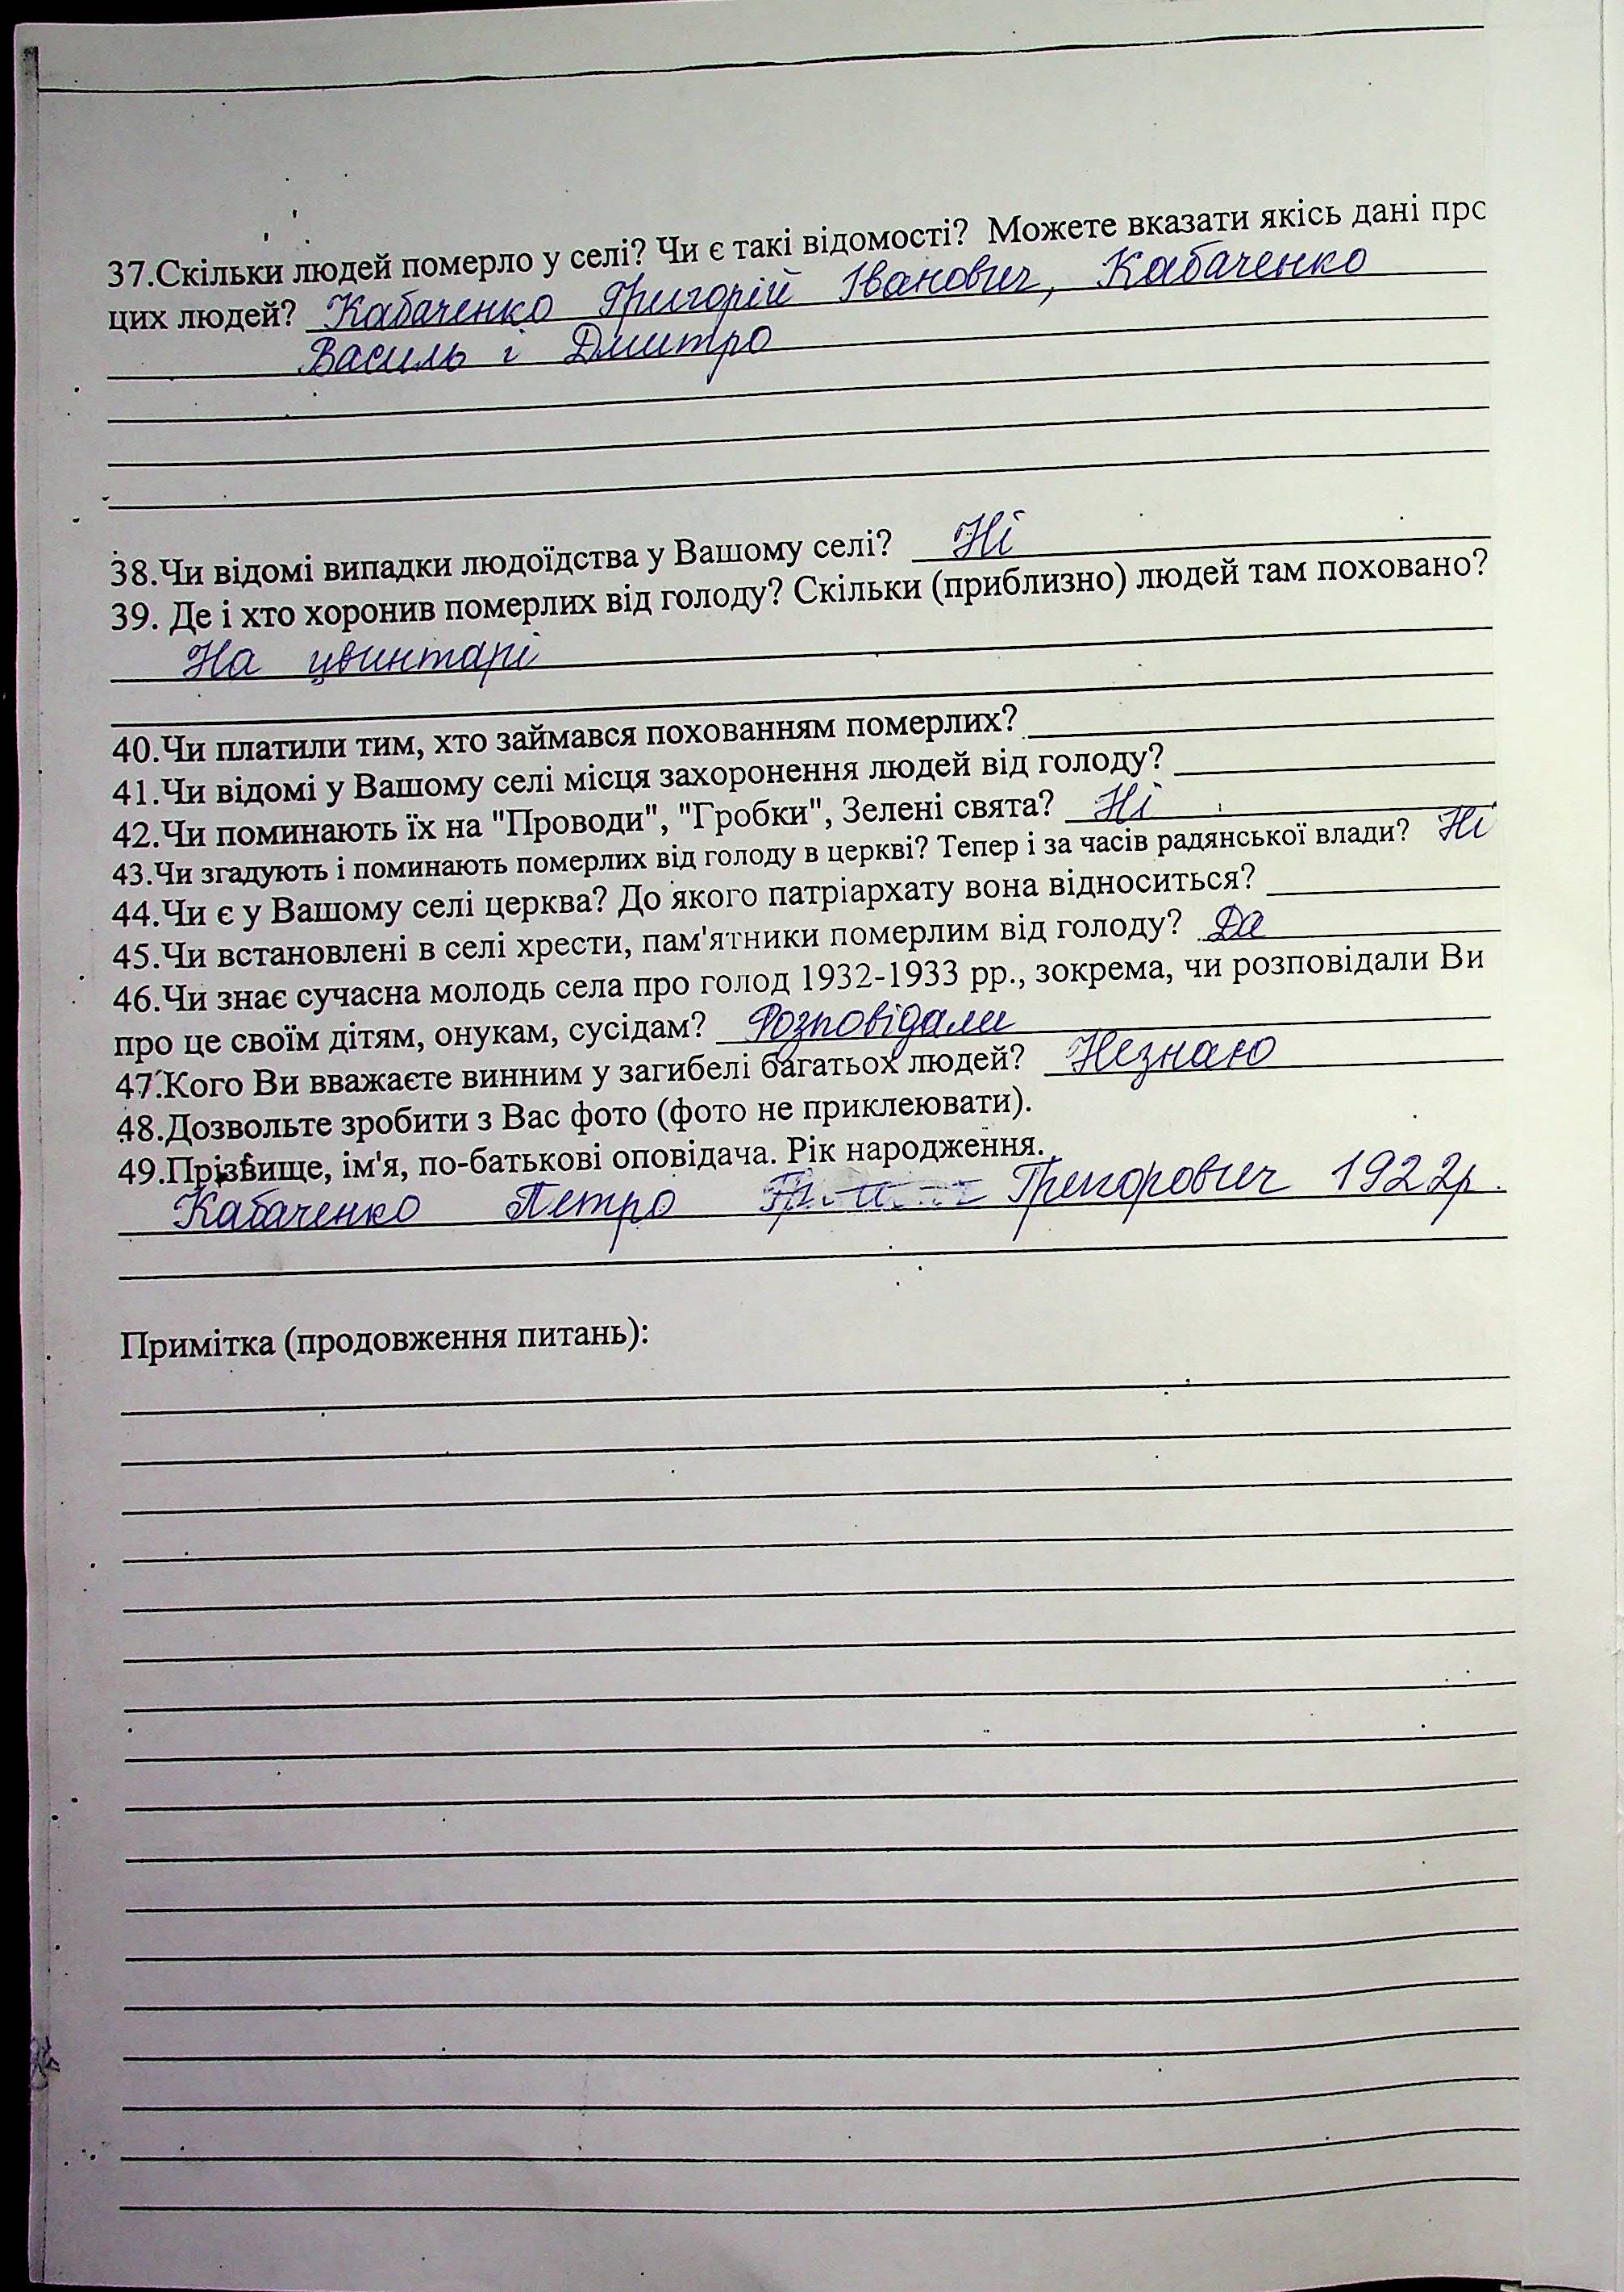 37.Скільки людей померло у селі? Чи є такі відомості? Можете вказати якісь дані про
цих людей? Кабаченко Григорій Іванович, Кабаченко
Василь і Дмитро
38.Чи відомі випадки людоїдства у Вашому селі? Ні
39. Де і хто хоронив померлих від голоду? Скільки (приблизно) людей там поховано?
На цвинтарі
40.Чи платили тим, хто займався похованням померлих?
41.Чи відомі у Вашому селі місця захоронення людей від голоду?
42.Чи поминають їх на "Проводи", "Гробки", Зелені свята? Ні
43.Чи згадують і поминають померлих від голоду в церкві? Тепер і за часів радянської влади? Ні
44.Чи є у Вашому селі церква? До якого патріархату вона відноситься?
45.Чи встановлені в селі хрести, пам'ятники померлим від голоду? Да
46.Чи знає сучасна молодь села про голод 1932-1933 рр., зокрема, чи розповідали Ви
про це своїм дітям, онукам, сусідам? Розповідали
47.Кого Ви вважаєте винним у загибелі багатьох людей? Незнаю
48.Дозвольте зробити з Вас фото (фото не приклеювати).
49.Прізвище, ім'я, по-батькові оповідача. Рік народження.
Кабаченко Петро Григорович 1922р.
Примітка (продовження питань):